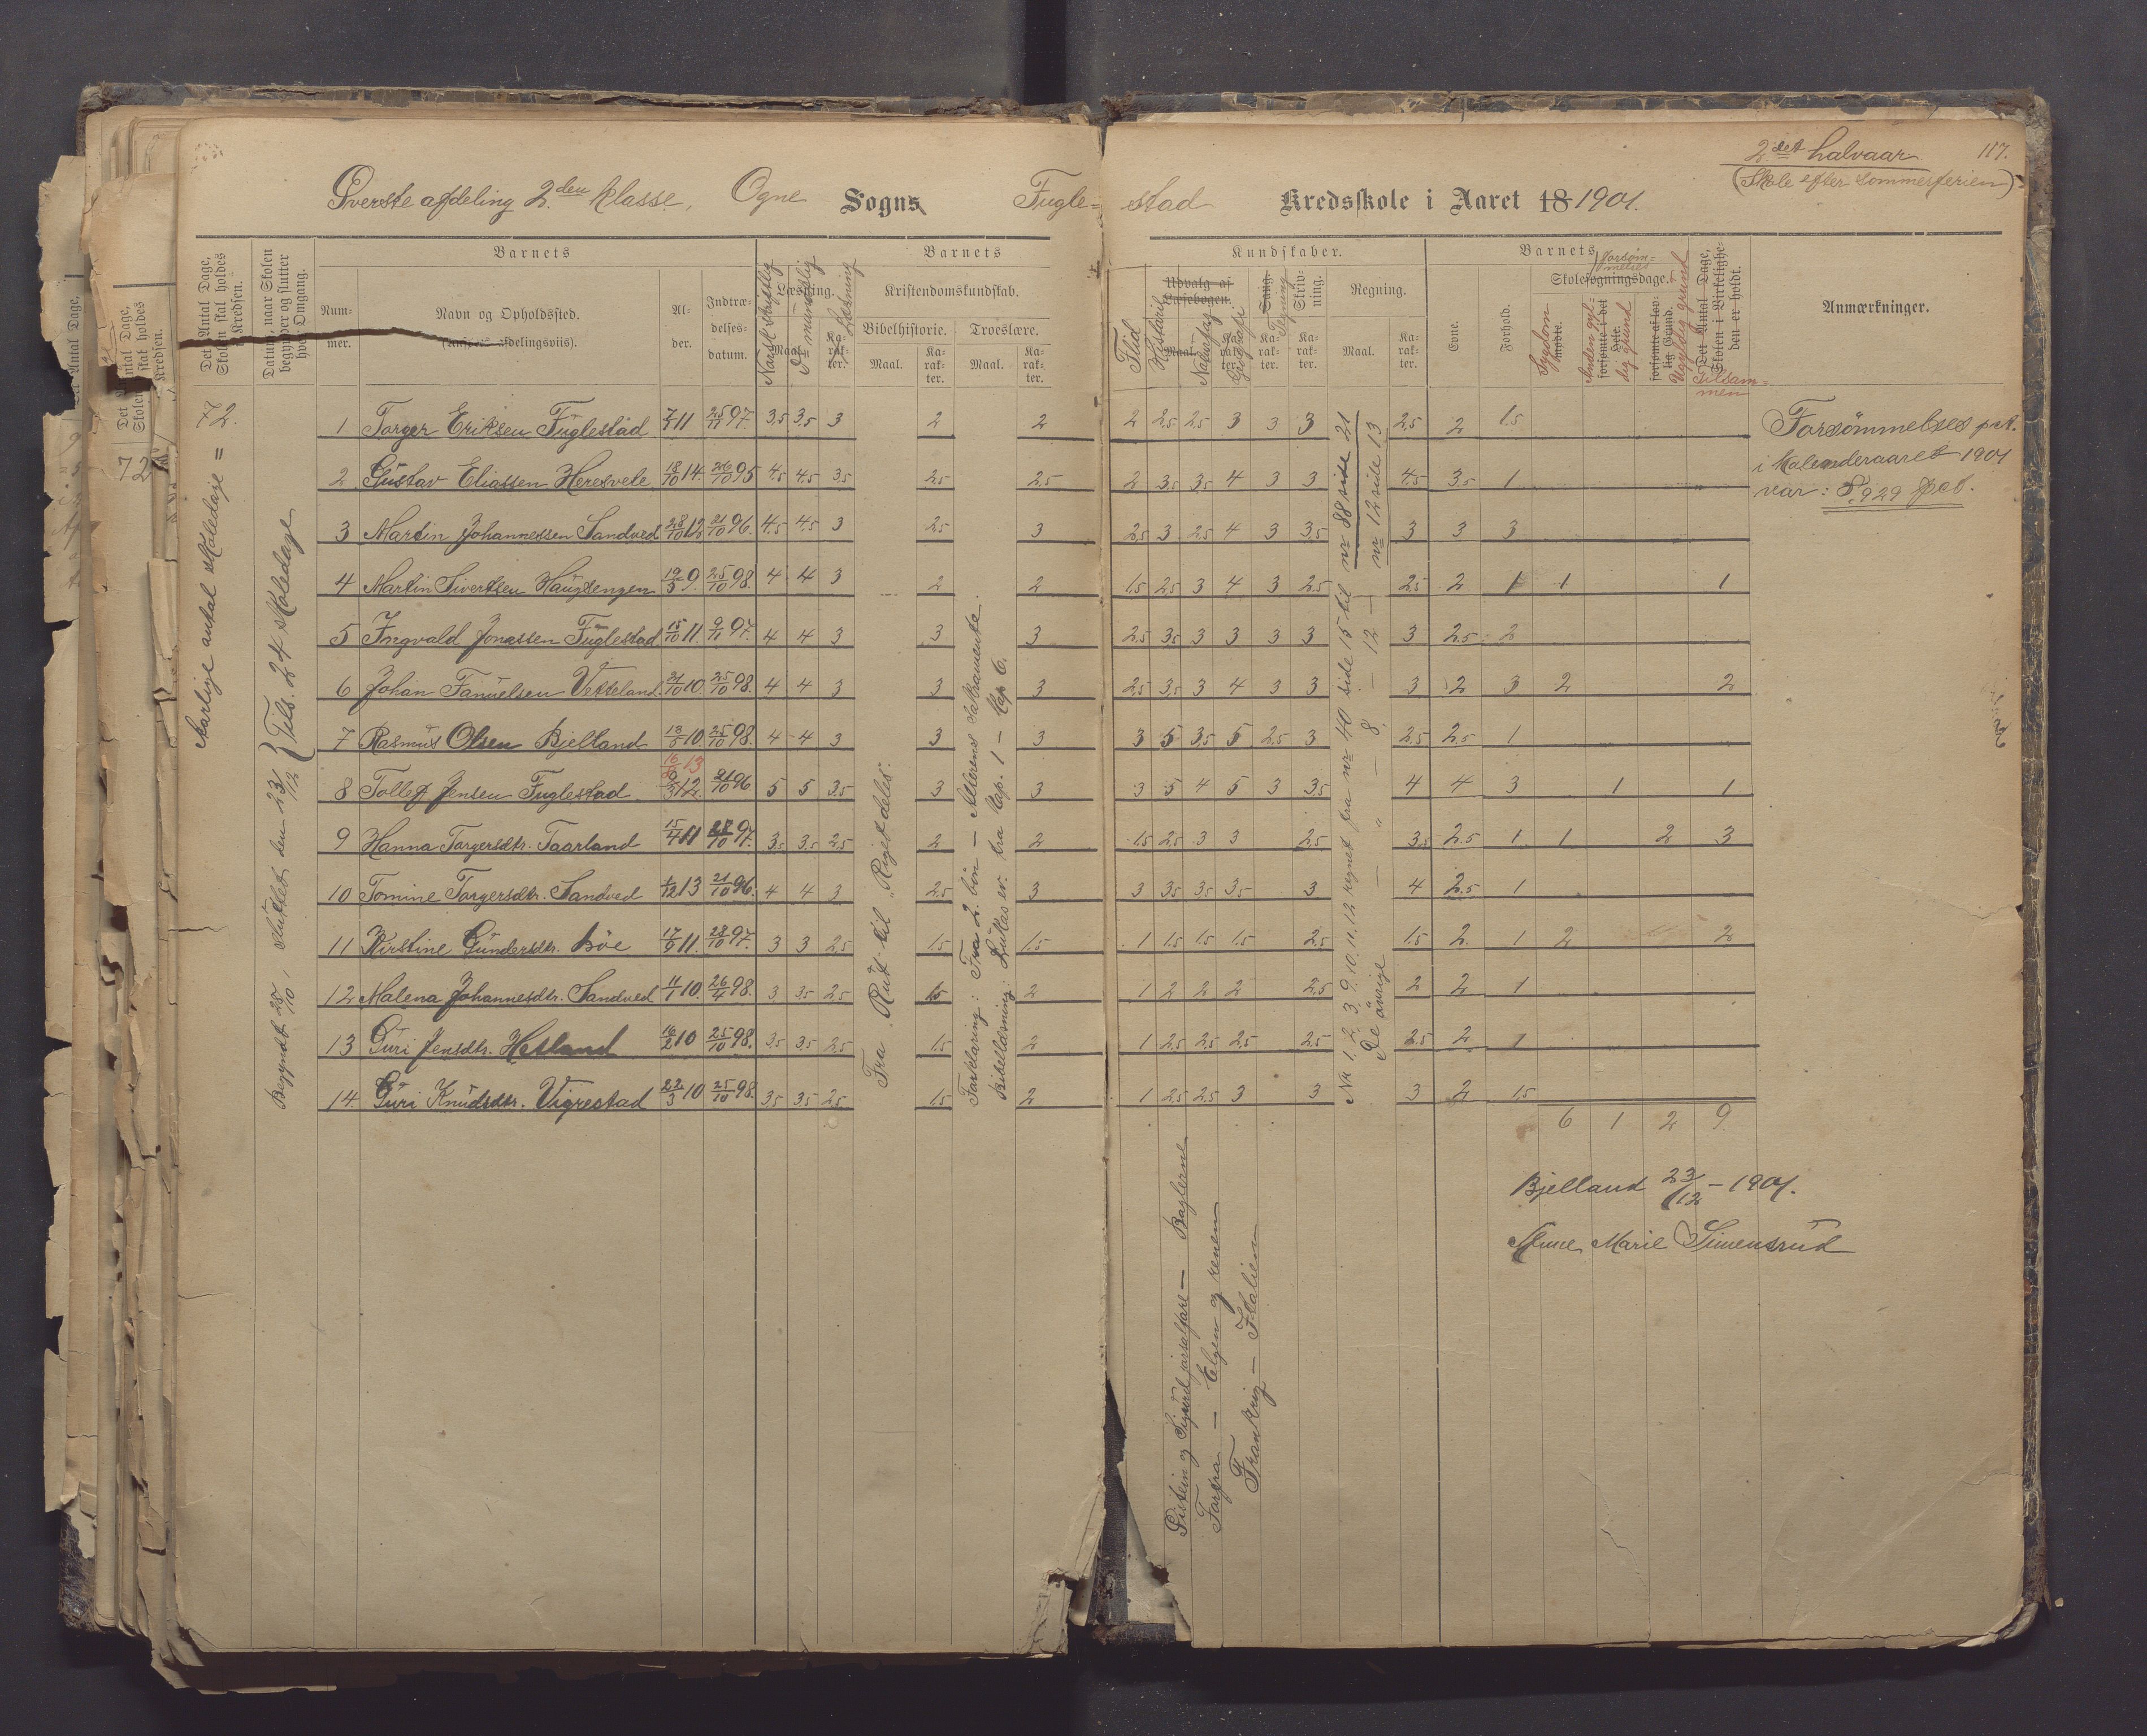 2det halvaar 117.
(Skole efter sommerferien)
Øverste afdeling 2.den klasse, Ogne Sogns Fugle= stad Kredsskole i Aaret 18 1901.
Det Antal Dage, Skolen skal holdes i Kredsen.
Datum, naar Skolen begynder og slutter hver Omgang.
Barnets
Num-mer.
Navn og Opholdssted.
(Anføres afdelingsviis).
Al-der.
Indtræ-delses-datum.
Barnets
Læsning.
Maal.
Ka-rak-ter.
Norsk skriftlig
Do = mundtlig
Læsning
Kristendomskundskab.
Bibelhistorie.
Troeslære.
Maal.
Ka-rak-ter.
Maal.
Ka-rak-ter.
Kundskaber.
Udvalg af Læsebogen.
Maal.
Ka-rak-ter.
Flid
Historie
Naturfag
Geografi
Sang.
Tegning
Ka-rak-ter.
Skriv-ning.
Ka-rak-ter.
Regning.
Maal.
Ka-rak-ter.
Barnets
Evne.
Forhold.
Skolesøgningsdage.
Forsøm-melses
mødte.
Sygdom
forsømte i det Hele.
Anden gyl-dig grund
forsømte af lov-lig Grund.
Ugyldig grund
Det Antal Dage, Skolen i Virkelighe-den er holdt.
Tilsam=men
Anmærkninger.
1 Torger Eriksen Fuglestad 7/5 11 25/11 97. 3,5 3,5 3 2 2 2 2,5 2,5 3 3 3 2,5 2 1,5
2 Gustav Eliassen Heresvele 18/10 14. 26/10 95 4,5 4,5 3,5 2,5 2,5 2 3,5 3,5 4 3 3 4,5 3,5 1
3 Martin Johannessen Sandved 28/10 12 21/10 96. 4,5 4,5 3 2,5 3 2,5 3 2,5 4 3 3,5 3 3 3
4 Martin Sivertsen Haugsengen 19/3 9. 25/10 98. 4 4 3 2 2 1,5 2,5 3 4 3 2,5 2,5 2 1 1 1
5 Ingvald Jonassen Fuglestad 15/10 11. 9/11 97. 4 4 3 3 3 2,5 3,5 3 3 3 3 3 2,5 2
6 Johan Fanuelsen Vetteland 21/10 10. 25/10 98. 4 4 3 3 3 2,5 3,5 3 4 3 3 3 2 3 2 2
7 Rasmus Olsen Bjelland 13/6 10. 25/10 98. 4 4 3 3 3 3 5 3,5 5 2,5 3 2,5 2,5 1
8 Tollef Jensen Fuglestad 12. 13 21/10 96 5 5 3,5 3 3 3 5 4 5 3 3,5 4 4 3 1 1
9 Hanna Torgersdtr. Taarland 15/4 11 28/10 97. 3,5 3,5 2,5 2 2 1,5 2,5 3 3 2,5 3,5 2,5 1 1 2 3
10 Tomine Torgersdtr. Sandved 1/12 13 21/10 96. 4 4 3 2,5 3 3 3,5 3,5 3,5 3 4 2,5 1
11 Kirstine Gundersdtr. Böe 17/9 11. 28/10 97. 3 3 2,5 1,5 1,5 1 1,5 1,5 1,5 2,5 1,5 2. 1 2 2
12 Malena Johannesdtr. Sandved 4/1 10. 26/4 98. 3 3,5 2,5 1,5 2 1 2 2 2 2,5 2 2 1
13 Guri Jensdtr. Hetland 16/2 10 25/10 98. 3,5 3,5 2,5 1,5 2 1 2,5 2,5 2,5 2,5 2,5 2 1
14. Guri Knudsdtr. Vigrestad 22/3 10 25/10 98. 3,5 3,5 2,5 1,5 2 1 2,5 2,5 3 3 3 2 1,5
6 1 2 9.
aarlige antal skoledage = 72.
72
Begyndt 28/10, sluttet den 23/12 } Tils. 24 skoledage
Fra „Rut" til „Riget deles".
Forklaring: Fra 2. bön — Alterens sakramente.
Bibellæsning: Lukas ev. fra Kap. 1 — Kap 6.
Nr 1. 2. 3. 9. 10. 11. 12 regnet fra nr 40 side 15 til nr 88 side 21
De övrige — „ — 8, — 12 — nr 12 side 13
Östein og Sigurd jorsalfare — Baglerne
Forfra — Elgen og renen
Frankrig — Italien
Forsömmelses pct.
i kalenderaaret 1901
var: 8,929 pct.
Bjelland 23/12 - 1901.
Anne Marie Simensrud